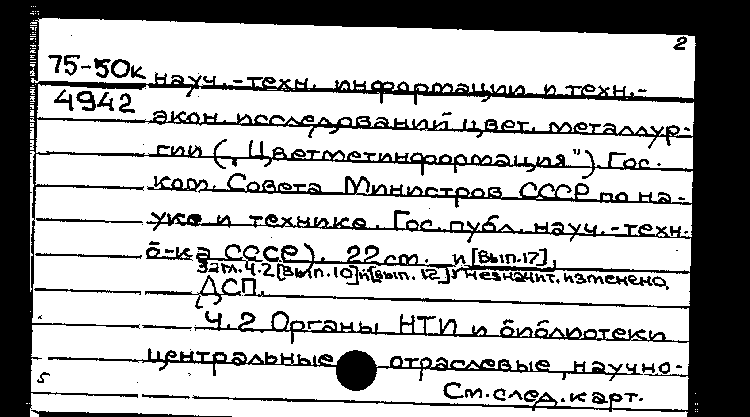 2
75-50к науч.-техн. информации и техн.-
4942 экон. исследований цвет. металлур-
гии („Цветметинформация"). Гос.
ком. Совета Министров СССР по на-
уке и технике. Гос. публ. науч.-техн.
б-ка СССР). 22 cm. и [Вып.17],
Загл. Ч.2 [Вып.10] и [вып. 12] незначит. изменено.
ДСП.
Ч.2. Органы НТИ и библиотеки
центральные отраслевые, научно-
5 См. след. карт.